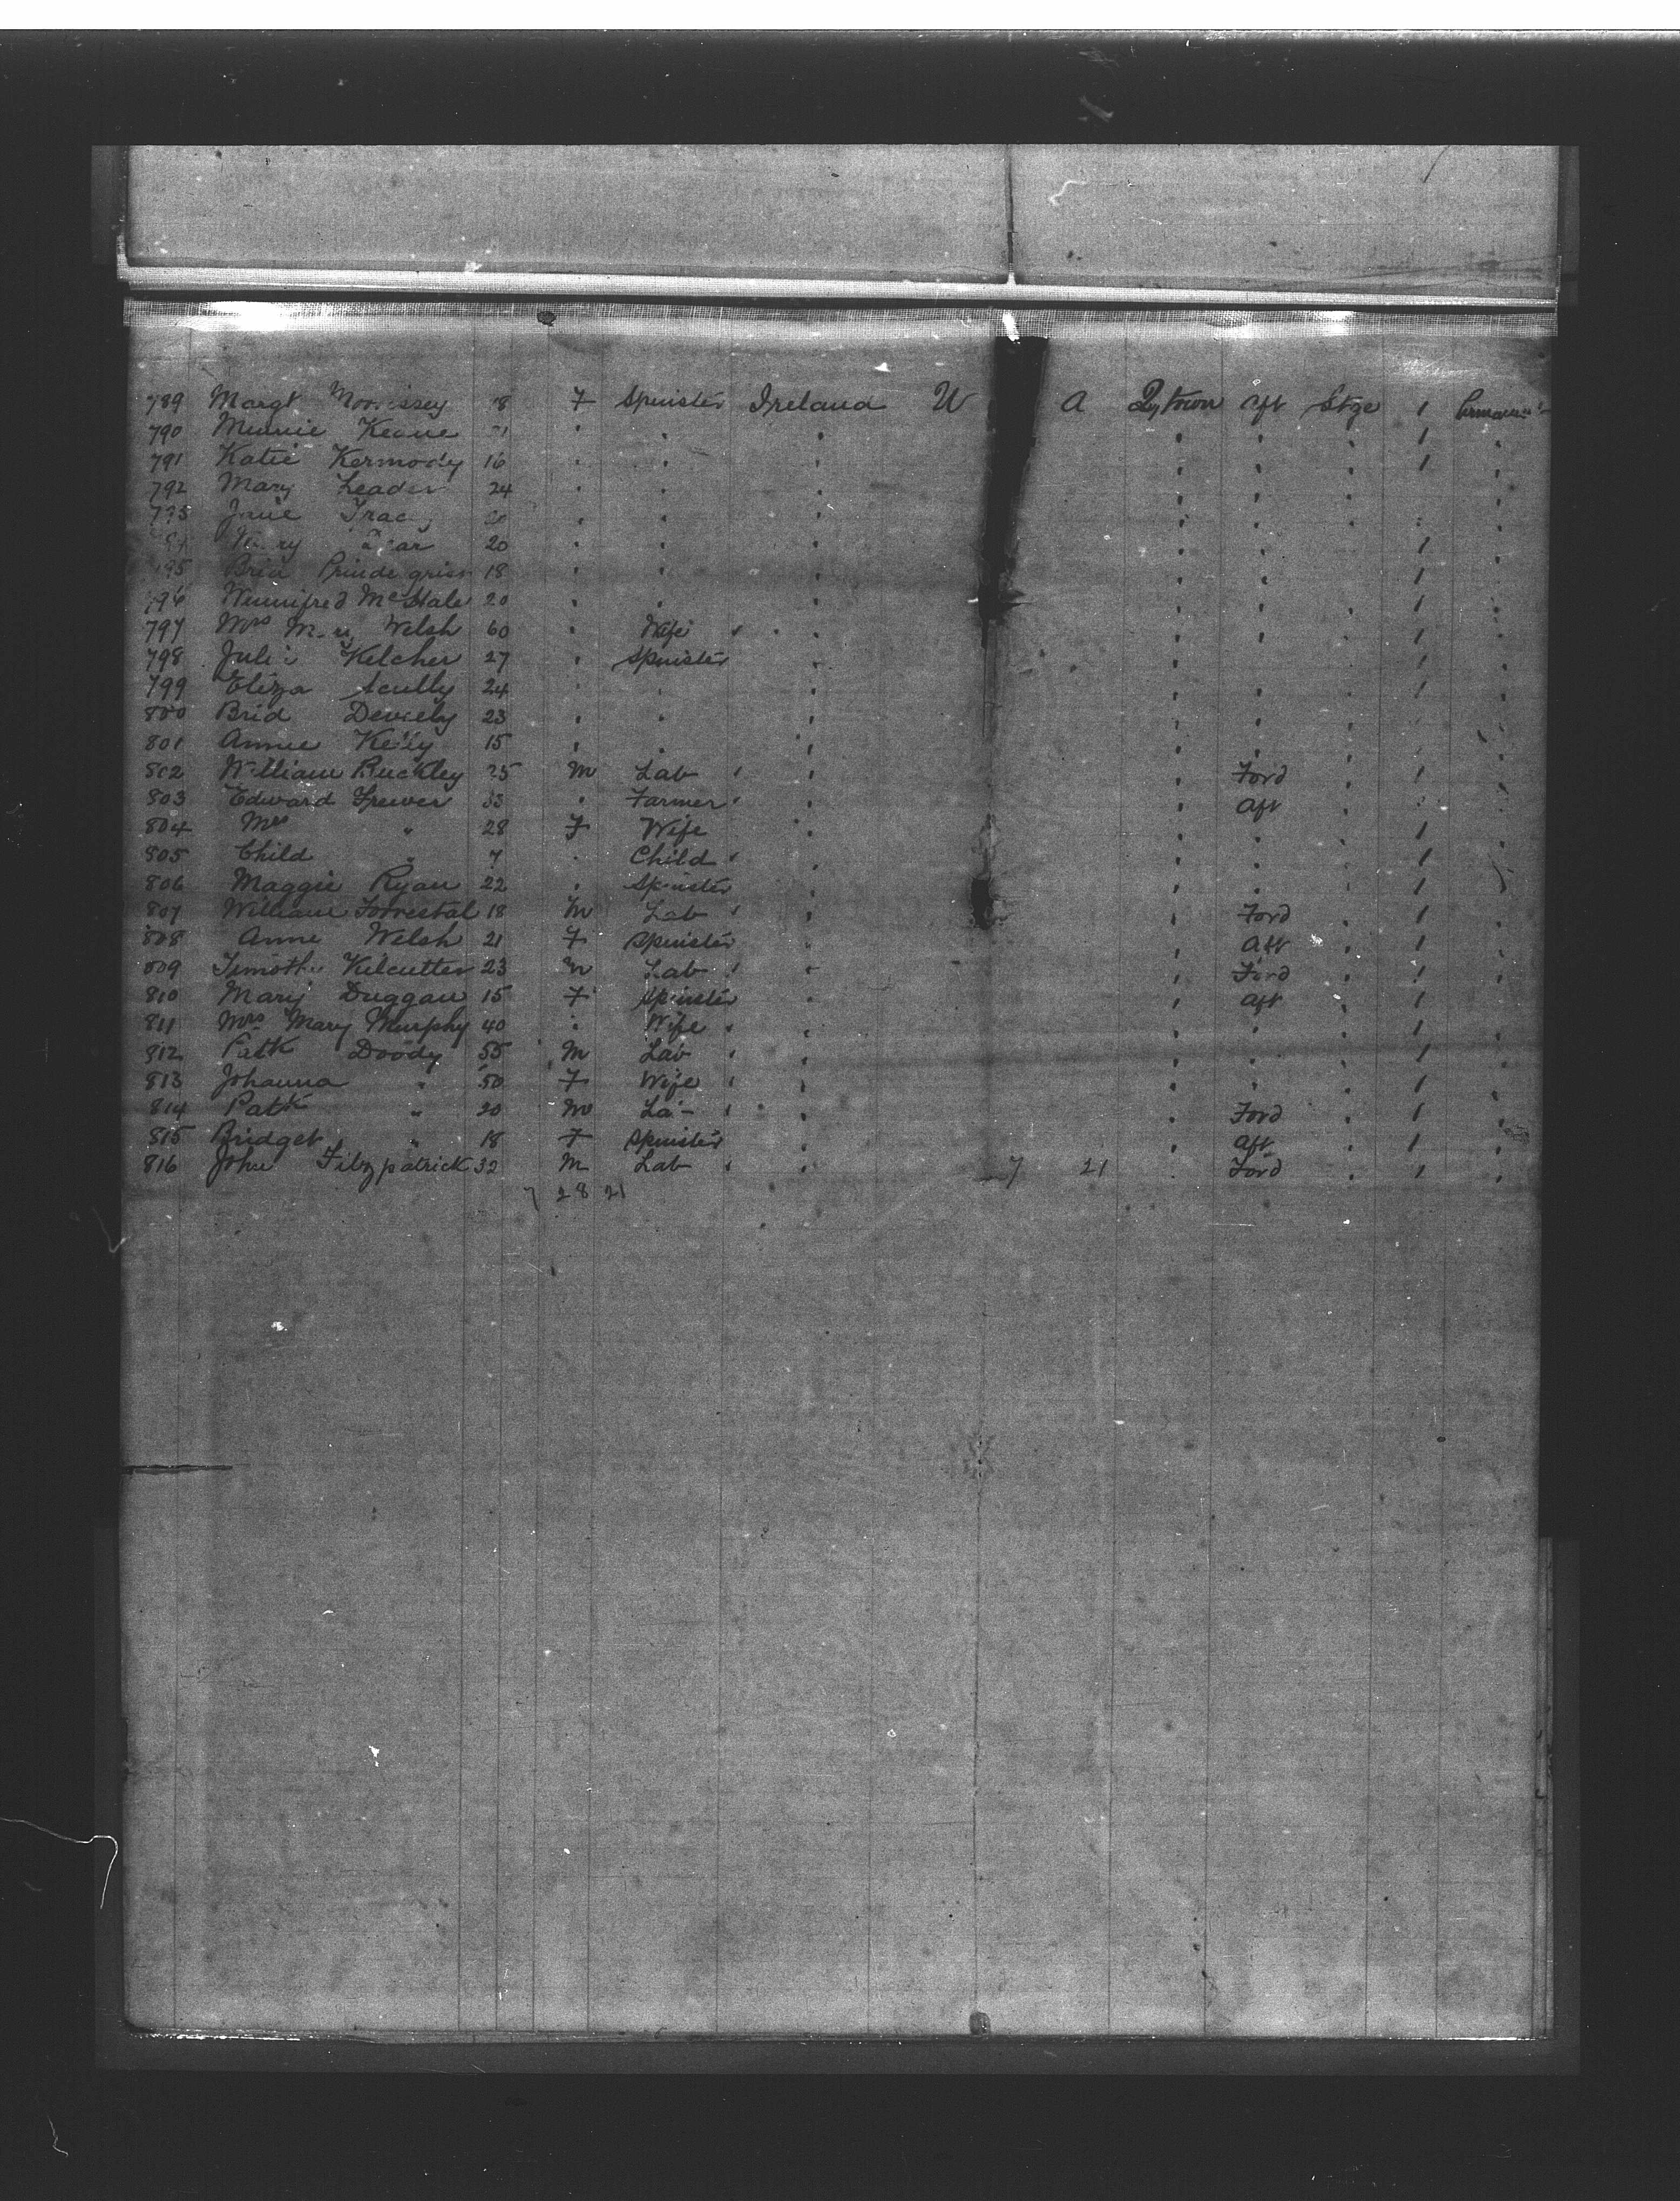 789 Margt Morrissey 18 F Spinister Ireland U A Qytown Aft Stge 1
790 Minnie Keane 21 " " " " " " 1 "
791 Katie Kermody 16 " " " " " " 1 "
792 Mary Leader 24 " " " " " " "
Jane Tracy 20 " " " " " " "
20 " " " " " " 1 "
795 18 " " " " " " 1 "
796 Winnifred McHale 20 " " " " " " 1 "
797 Mrs Welsh 60 " Wife " " " " 1 "
798 Julia Kelcher 27 " Spinister " " 1 "
799 Eliza Scully 24 " " " " " " 1 "
800 Brid 23 " " " " " " "
801 Annie Kelly 15 " " " " " " "
802 William Buckley 25 M Lab " " Ford " 1 "
803 Edward 33 " Farmer " " Aft " "
804 Mrs " 28 F Wife " " " " 1 "
805 Child " 7 " Child " " " " 1
806 Maggie Ryan 22 " Spinister " " " " 1
807 William Forrestal 18 M Lab " " Ford " 1 "
808 Anne Welsh 21 F Spinister " " Aft " 1 "
809 Timothy 23 M Lab " " Ford " 1 "
810 Mary Duggan 15 F Spinister " " Aft " 1 "
811 Mrs Mary Murphy 40 " Wife " " " " 1 "
812 Patk Doody 55 M Lab " " " " 1 "
813 Johanna " 50 F Wife " " " " 1 "
814 Patk " 20 M Lab " " Ford " 1 "
815 Bridget " 18 F Spinister " " Aft " 1 "
816 John Fitzpatrick 32 M Lab " 7 21 " Ford " 1 "
7 28 21